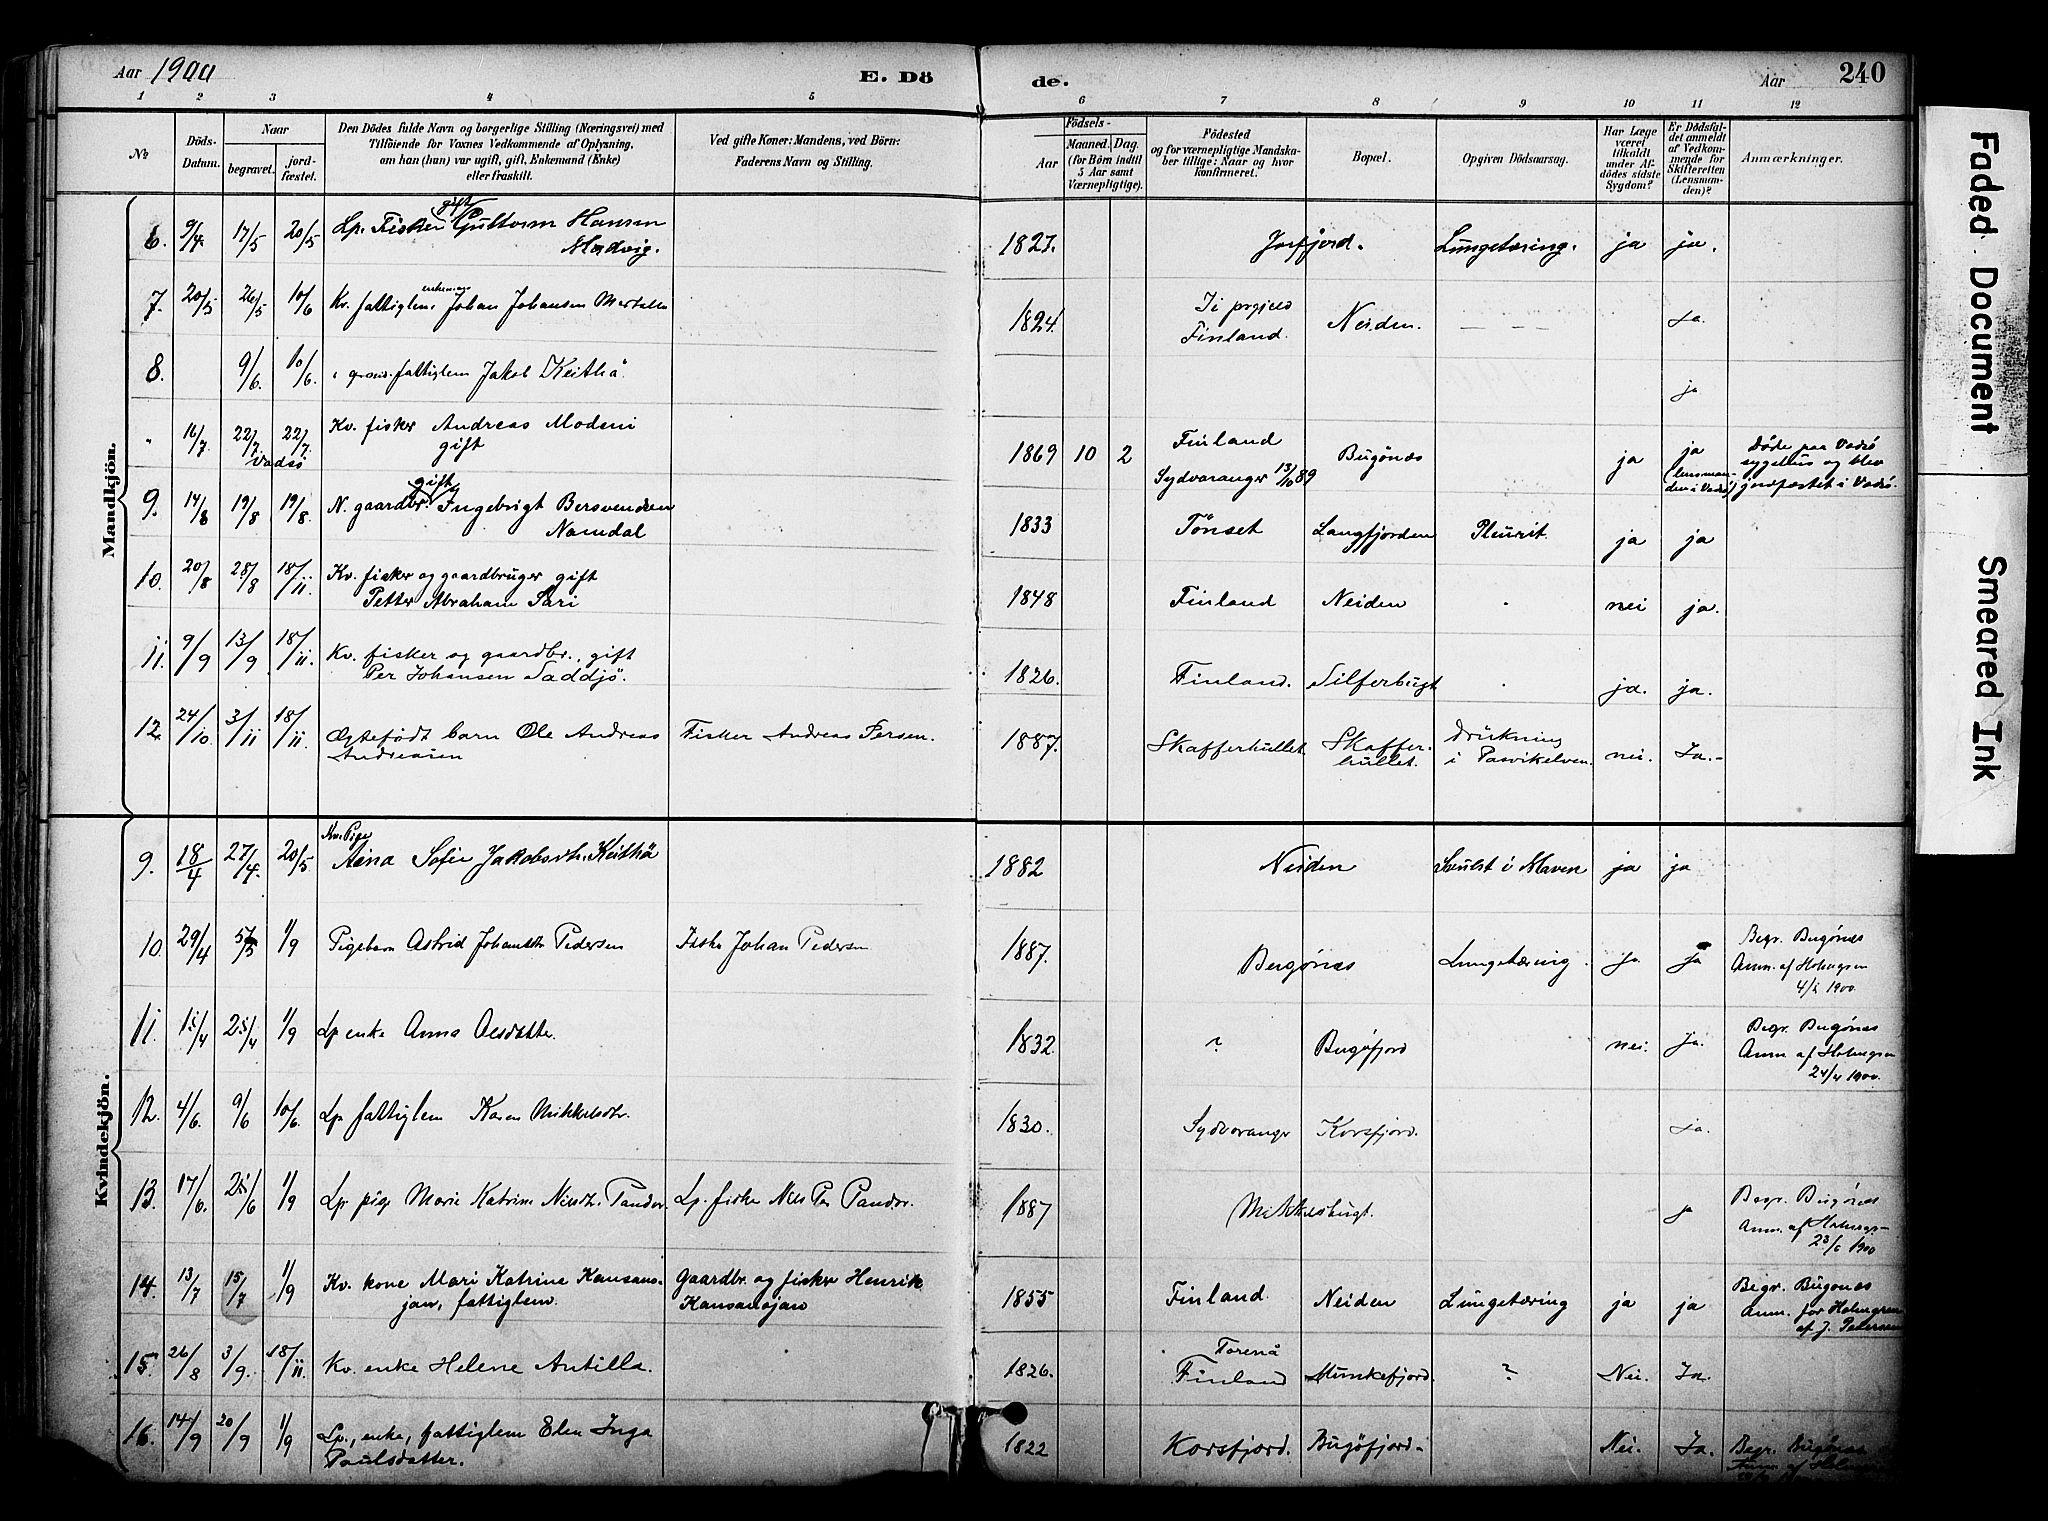 Aar 1900
E. Döde.
Aar
240
1 2 3 4 5 6 7 8 9 10 11 12
No.
Döds-Datum.
Naar
begravet.
jordfæstet.
Den Dödes fulde Navn og borgerlige Stilling (Næringsvei) med
Tilföiende for Voxnes Vedkommende af Oplysning,
om han (hun) var ugift, gift, Enkemand (Enke)
eller fraskilt.
Ved gifte Koner: Mandens, ved Börn:
Faderens Navn og Stilling.
Födsels-
Aar
Maaned. Dag.
(for Börn indtil
5 Aar samt
Værnepligtige).
Födested
og for værnepligtige Mandskaber tillige: Naar og hvor
konfirmeret.
Bopæl.
Opgiven Dödsaarsag.
Har Læge
været
tilkaldt
under Afdödes sidste
Sygdom?
Er Dödsfaldet anmeldt
af Vedkommende for
Skifteretten
(Lensmanden)?
Anmærkninger.
Mandkjön.
6. 9/4. 17/5 20/5 Lp. Fisker gift Guttorm Hansen Madvig. 1827. Jarfjord. Lungetæring. ja ja.
7. 20/5 26/5 10/6 Kv. fattiglem, enkeman Johan Johansen 1824. Ii prgjeld Finland. Neiden. — — — Ja.
8. 9/6. 10/6. fattiglem Jakob Keithå ja
" 16/7 22/7 Vadsö 22/7. Kv. fisker Andreas Modeni gift 1869 10 2 Finland Sydvaranger 13/10 89 Bugønæs ja ja (lensmanden i Vadsö) Døde paa Vadsö sygehus og blev jordfæstet i Vadsö.
9. 14/8 19/8 19/8. N. gaardbr. gift Ingebrigt Bersvendsen Namdal 1833 Tönset Langfjorden Pleurit. ja ja
10. 20/8 28/8 18/11. Kv. fisker og gaardbruger gift Petter Abraham Sari 1848 Finland Neiden . nei ja.
11. 9/9 13/9 18/11. Kv. fisker og gaardbr., gift Per Johansen Saddjö. 1826. Finland. Silferbugt . ja. ja.
12. 24/10. 3/11 18/11. Ægtefödt barn Ole Andreas Andreasen Fisker Andreas Persen. 1887. Skafferhullet Skafferhullet. Drukning i Pasvikelven. nei. Ja.-
Kvindekjön.
9. 18/4 27/4. 20/5 Kv. Pige Aina Sofie Jakobsdtr. Keithä 1882 Neiden Svulst i Maven ja ja
10. 29/4 5/5 1/9 Pigebarn Astrid Johansdtr Pedersen Fisker Johan Pedersen 1887. Bugønæs Lungetæring. ja ja Begr. Bugønæs Anm. af Holmgren 4/5 1900.
11. 15/4 25/4 1/9 Lp enke Anna Olsdatter. 1832. ? Bugöfjord nei. Ja. Begr. Bugønæs Anm. af Holmgren 24/4 1900.
12. 4/6. 9/6 10/6. Lp fattiglem Karen Mikkelsdtr. 1830. Sydvaranger Korsfjord. ja.
13. 17/6. 25/6 1/9 Lp pige Marie Katrine Nilsdtr. Pandor. Lp. fisker Nils Per Pandor. 1887 Mikkelsbugt. ja Begr. Bugønæs Anm. af Holmgren 23/6 1900
14. 13/7 15/7 1/9 Kv. kone Mari Katrine Kansansjan, fattiglem. Gaardbr. og fisker Henrik Kansanojan 1855 Finland. Neiden Lungetæring ja ja Begr. Bugønæs Anm. for Holmgren af J. Petersen
15. 26/8 3/9. 18/11. Kv. enke Helene Antilla. 1826. Torneå Finland Munkefjord. ? Nei. Ja.
16. 14/9 20/9 1/9 Lp., enke, fattiglem Elen Inga Paulsdatter. 1822 Korsfjord. Bugöfjord- Nei. Ja. Begr. Bugønæs Anm. af
Faded Document
Smeared Ink